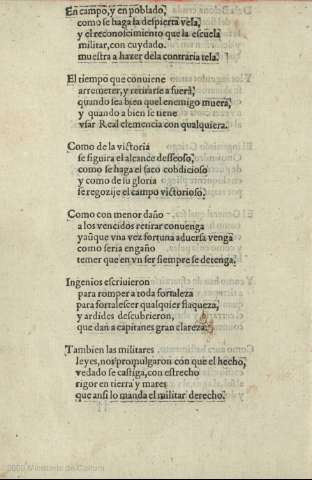 En campo, y en poblado,
como se haga la despierta vela,
y el reconocimiento que la escuela
militar, con cuydado.
muestra a hazer de la contraria tela.
El tiempo que conuiene
arremeter, y retirarse a fuera,
quando sea bien quel enemigo muera,
y quando a bien se tiene
vsar Real clemencia con qualquiera.
Como de la victoria
se siguira el alcance desseoso,
como se haga el saco cobdicioso
y como de su gloria
se regozije el campo victorioso.
Como con menor daño
a los vencidos retirar conuenga
y aũque vna vez fortuna aduersa venga
como seria engaño
temer que en vn ser siempre se detenga.
Ingenios escriuieron
para romper a toda fortaleza
para fortalescer qualquier flaqueza,
y ardides descubrieron,
que dan a capitanes gran clareza.
Tambien las militares
leyes, nos propulgaron con que el hecho,
vedado se castiga, con estrecho
rigor en tierra y mares
que ansi lo manda el militar derecho.
2009 Ministerio de Cultura